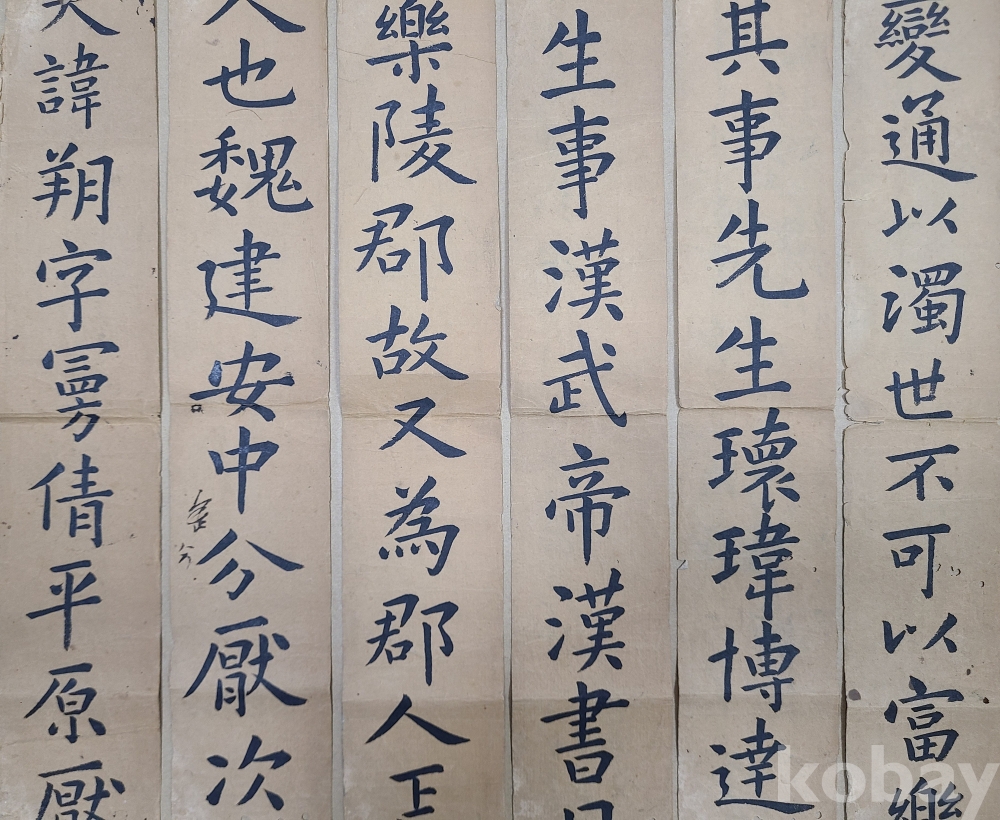 夫諱朔字曼倩平原厭
人也魏建安中分厭次
樂陵郡故又為郡人
生事漢武帝漢書
其事先生瓌瑋博達
變通以濁世不可以富樂
kobay